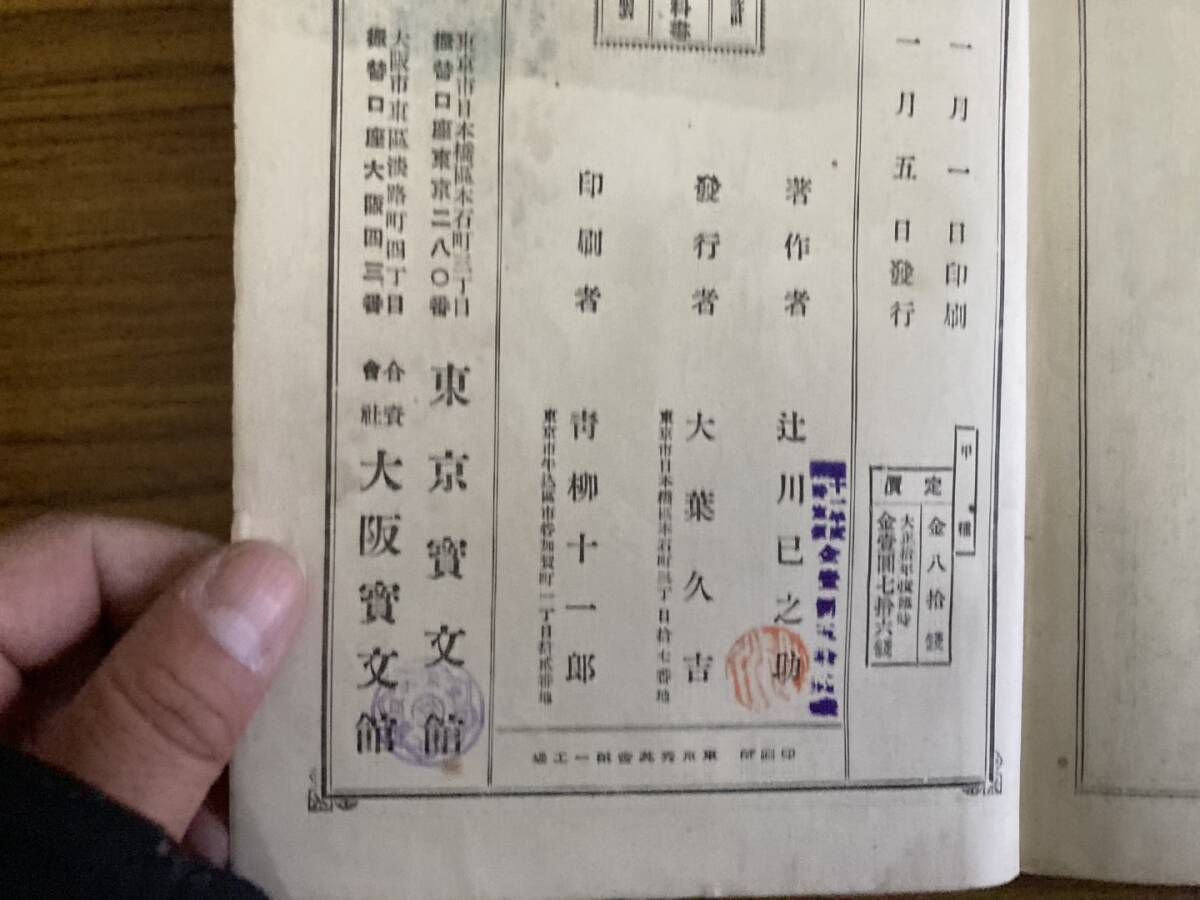 一月一日印刷
一月五日發行
甲種
定價
金八拾錢
大正拾年度臨時
金壹圓七拾六錢
著作者 辻川巳之助
發行者 大葉久吉
東京市日本橋區本石町三丁目拾七番地
印刷者 青柳十一郎
東京市牛込區市谷加賀町一丁目拾貳番地
東京市日本橋區本石町三丁目
振替口座東京二八〇番
東京寶文館
大阪市東區淡路町四丁目
振替口座大阪四三番
合資會社
大阪寶文館